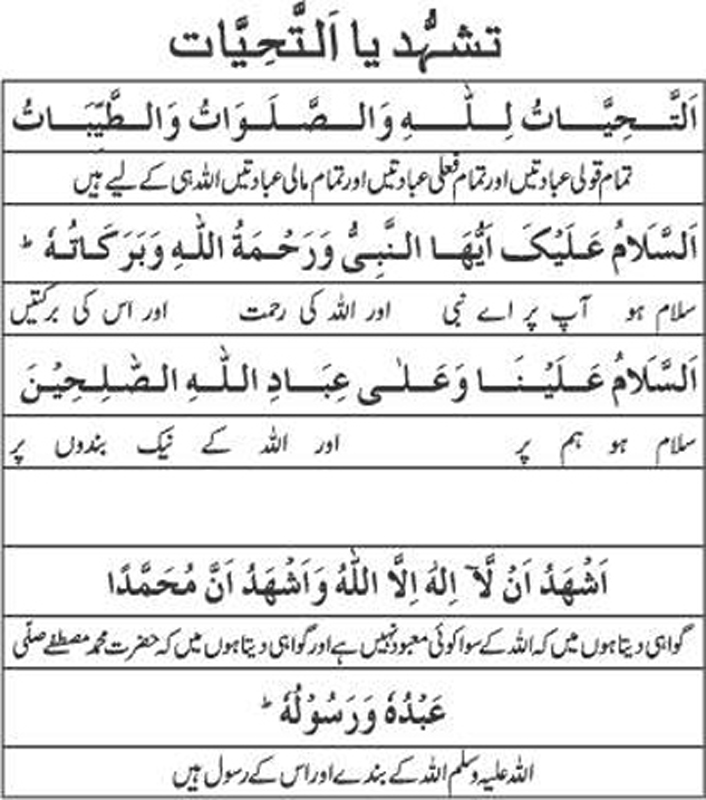 تشہُّد یا اَلتَّحِیَّات
اَلتَّـحِیَّـاتُ لِـلّٰـہِ وَالـصَّـلَـوَاتُ وَالـطَّیِّبَـاتُ
تمام قولی عبادتیں اور تمام فعلی عبادتیں اور تمام مالی عبادتیں اللہ ہی کے لیے ہیں
اَلسَّلَامُ عَـلَیْکَ اَیُّھَـا الـنَّبِیُّ وَرَحْـمَۃُ اللّٰہِ وَبَرَکَـاتُـہٗ ؕ
سلام ہو آپ پر اے نبی اور اللہ کی رحمت اور اس کی برکتیں
اَلسَّلَامُ عَـلَیْـنَـا وَعَـلٰـی عِبَـادِ الـلّٰـہِ الـصّٰـلِحِیْـنَ
سلام ہو ہم پر اور اللہ کے نیک بندوں پر
اَشْھَدُ اَنْ لَّآ اِلٰہَ اِلَّا اللّٰہُ وَاَشْھَدُ اَنَّ مُحَمَّدًا
گواہی دیتا ہوں میں کہ اللہ کے سوا کوئی معبود نہیں ہے اور گواہی دیتا ہوں میں کہ حضرت محمد مصطفےٰ صلی
عَبْدُہٗ وَرَسُوْلُہٗ ؕ
اللہ علیہ وسلم اللہ کے بندے اور اس کے رسول ہیں